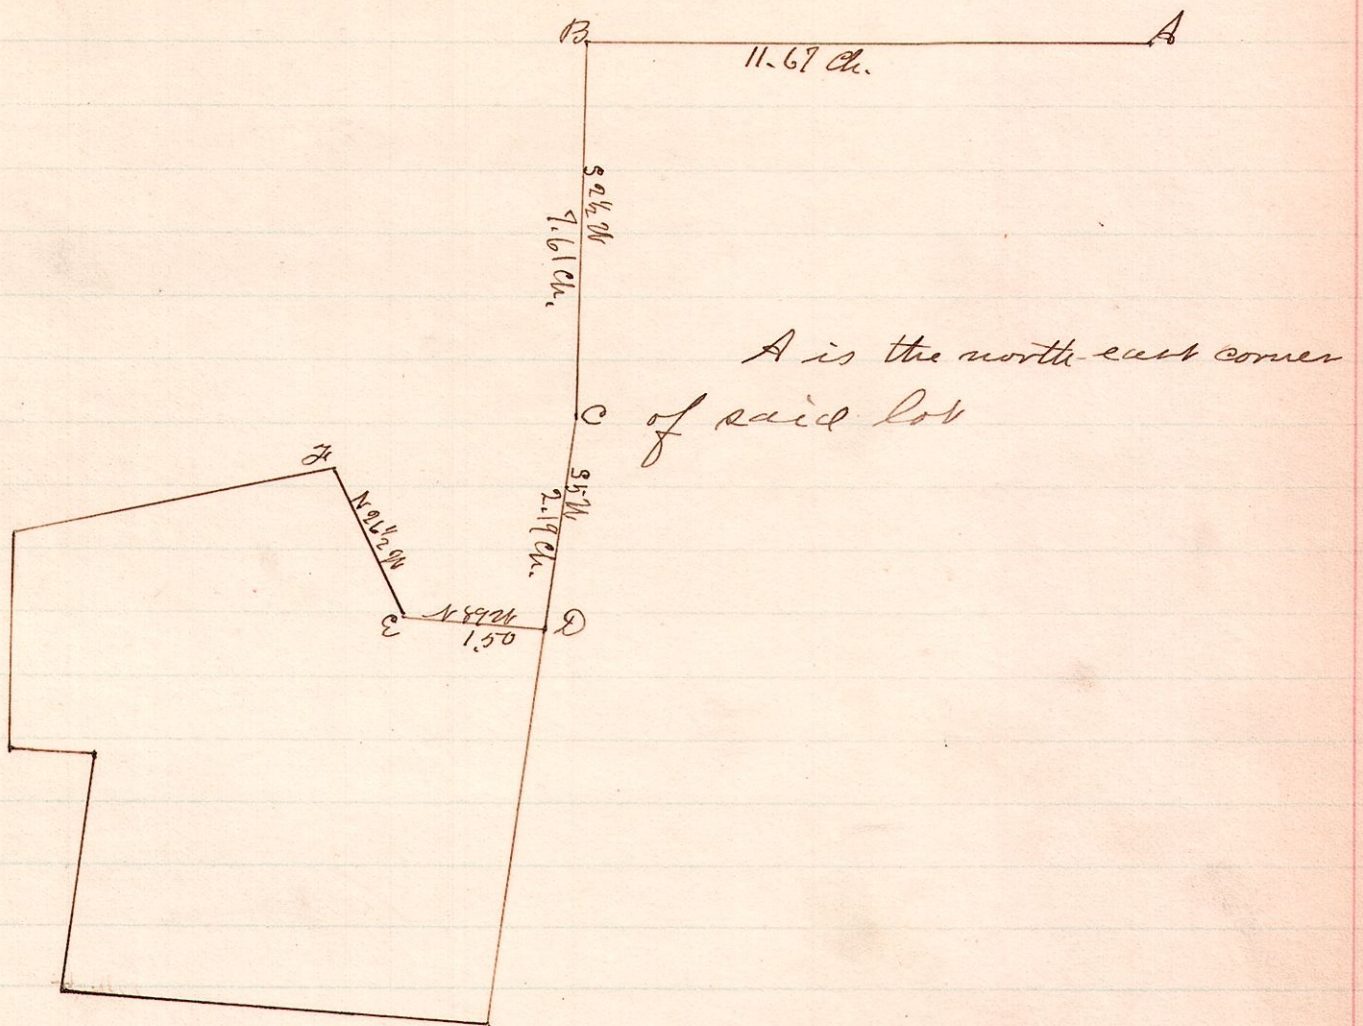 B
A
11.67 Ch.
S 2½ W
7.61 Ch.
A is the north-east corner
of said lot
C
S 5 W
2.19 Ch.
F
N 26½ W
E
N 89 W
1.50
D